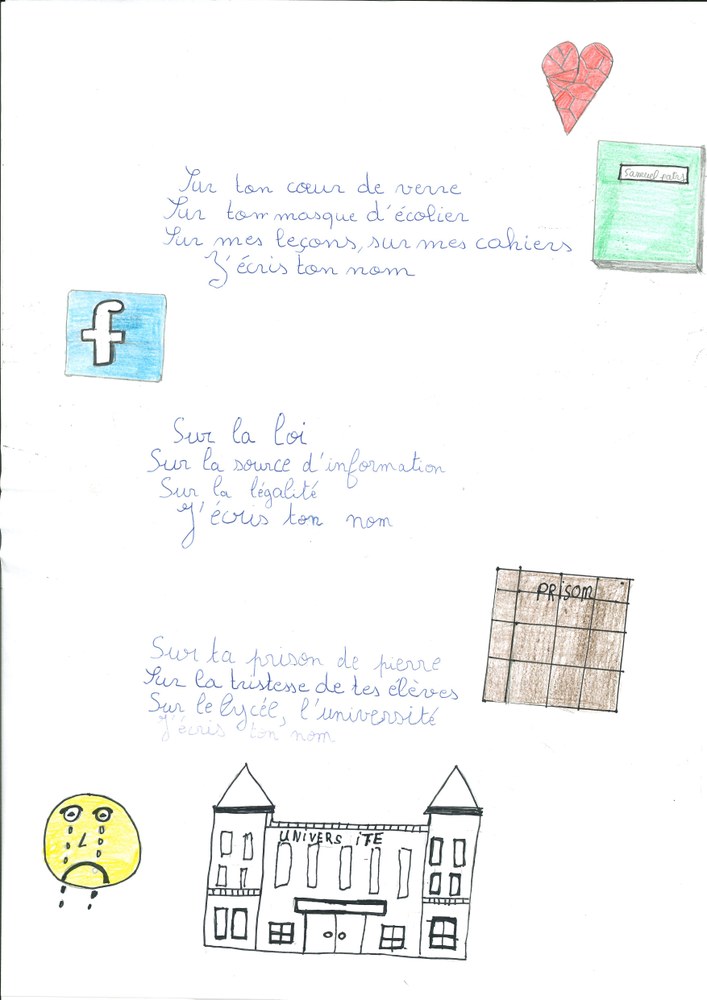 Samuel paty
Sur ton cœur de verre
Sur ton masque d'écolier
Sur mes leçons, sur mes cahiers
J'écris ton nom
f
Sur la loi
Sur la source d'information
Sur la légalité
J'écris ton nom
PRISON
Sur ta prison de pierre
Sur la tristesse de tes élèves
Sur le lycée, l'université
J'écris ton nom
UNIVERSITE